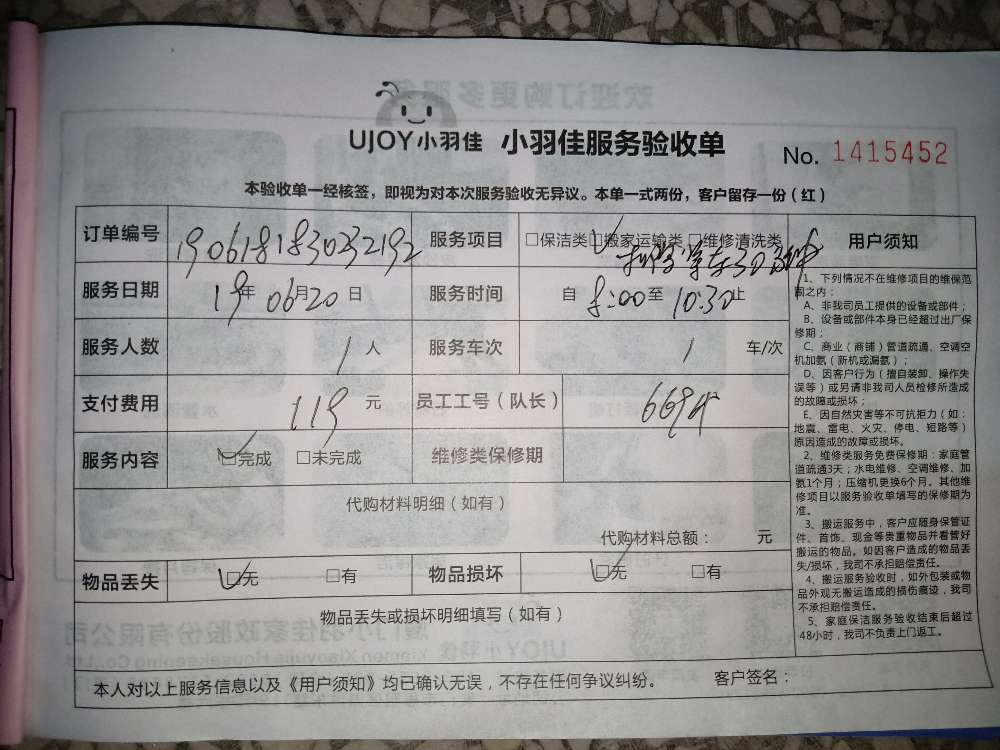 UJOY小羽佳 小羽佳服务验收单 No. 1415452
本验收单一经核签，即视为对本次服务验收无异议。本单一式两份，客户留存一份（红）
订单编号 1906181830232192 服务项目 □保洁类 □搬家运输类 □维修清洗类
服务日期 19年06月20日 服务时间 自 8:00至 10:30止
服务人数 1 人 服务车次 1 车/次
支付费用 119 元 员工工号（队长） 6694
服务内容 □完成 □未完成 维修类保修期
代购材料明细（如有）
代购材料总额： 元
物品丢失 □无 □有 物品损坏 □无 □有
物品丢失或损坏明细填写（如有）
本人对以上服务信息以及《用户须知》均已确认无误，不存在任何争议纠纷。 客户签名：
用户须知
1、下列情况不在维修项目的维保范
围之内：
A、非我司员工提供的设备或部件；
B、设备或部件本身已经超过出厂保
修期；
C、商业（商铺）管道疏通、空调空
机加氨（新机或漏氨）；
D、因客户行为（擅自装卸、操作失
误等）或另请非我司人员检修所造成
的故障或损坏；
E、因自然灾害等不可抗拒力（如：
地震、雷电、火灾、停电、短路等）
原因造成的故障或损坏。
2、维修类服务免费保修期：家庭管
道疏通3天；水电维修、空调维修、加
氨1个月；压缩机更换6个月。其他维
修项目以服务验收单填写的保修期为
准。
3、搬运服务中，客户应随身保管证
件、首饰、现金等贵重物品并看管好
搬运的物品。如因客户造成的物品丢
失/损坏，我司不承担赔偿责任。
4、搬运服务验收时，如外包装或物
品外观无搬运造成的损伤痕迹，我司
不承担赔偿责任。
5、家庭保洁服务验收结束后超过
48小时，我司不负责上门返工。